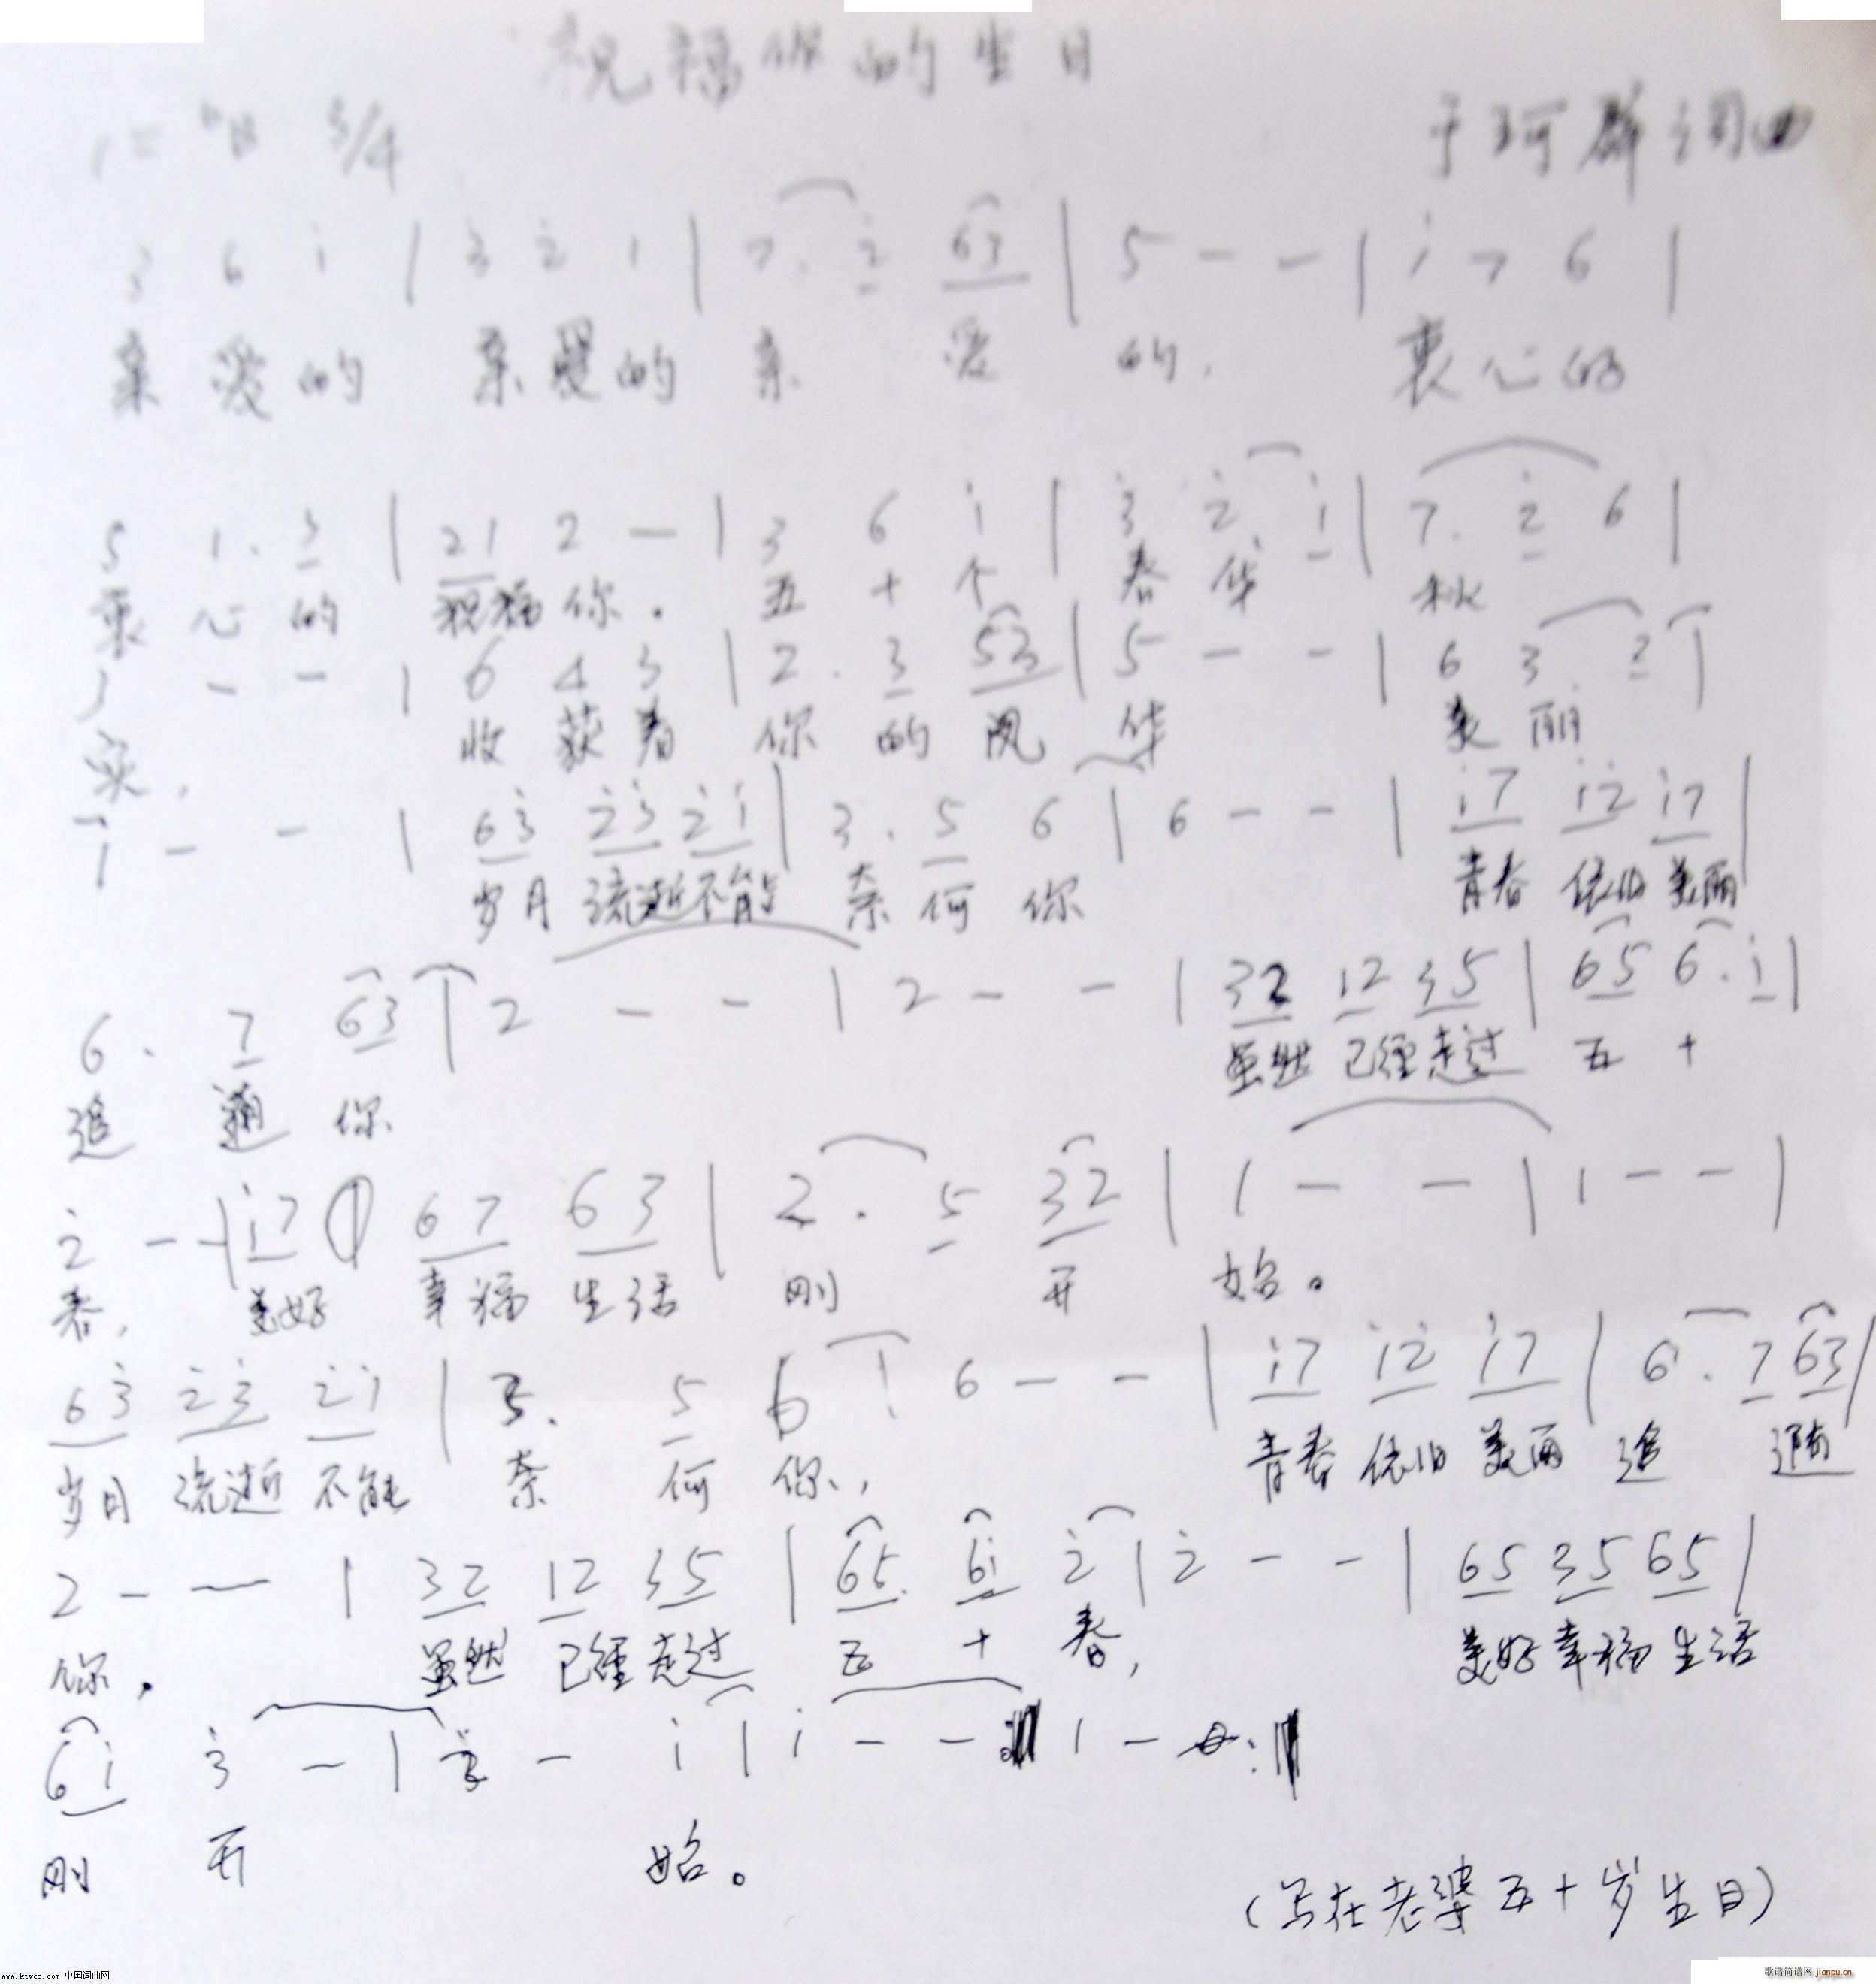 祝福你的生日
1= ♭B 3/4 于珂群词曲
3 6 i | 3 2 1 | 7. 2 63 | 5 - - | i 7 6 |
亲爱的 亲爱的 亲 爱 的, 衷心的
5 1. 3 | 21 2 - | 3 6 i | 3 2. i | 7. 2 6 |
衷心的 祝福你。 五十个 春华 秋
3 - - | 6 4 3 | 2. 3 53 | 5 - - | 6 3. 2 |
实, 收获着 你的风华 美丽
1 - - | 63 23 21 | 3. 5 6 | 6 - - | i7 i2 i7 |
岁月 流逝不能 奈何你 青春 依旧 美丽
6. 7 63 | 2 - - | 2 - - | 32 12 35 | 65 6. i |
追 随 你 虽然 已经走过 五 十
2 - - | i7 67 63 | 2. 5 32 | 1 - - | 1 - - |
春, 美好 幸福 生活 刚 开 始。
63 23 2i | 3. 5 6 | 6 - - | i7 i2 i7 | 6. 7 63 |
岁月 流逝 不能 奈 何 你, 青春 依旧 美丽 追 随
2 - - | 32 12 35 | 65 6i 2 | 2 - - | 65 35 65 |
你, 虽然 已经走过 五 十 春, 美好 幸福 生活
6i 3 - | 2 - i | i - - | 1 - 0 :||
刚 开 始。
(写在老婆五十岁生日)
www.ktvc8.com 中国词曲网
歌谱简谱网 jianpu.cn